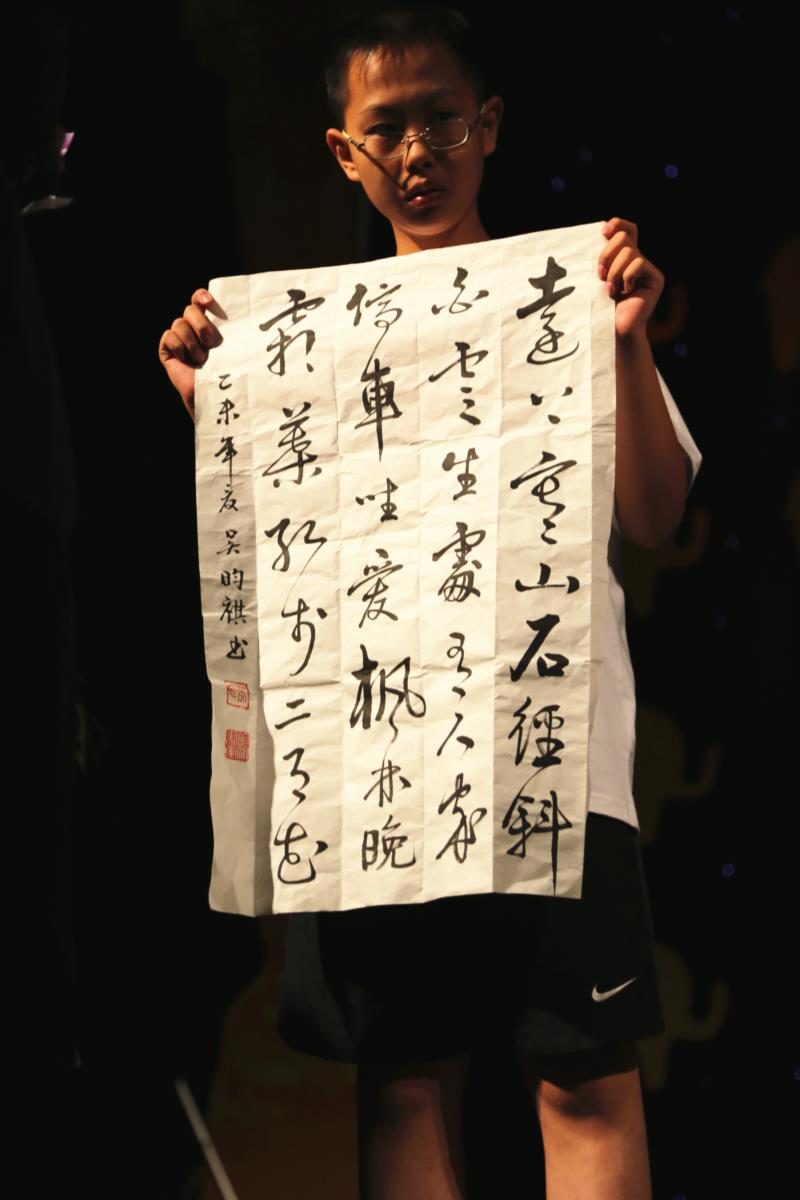 遠上寒山石徑斜
白雲生處有人家
停車坐愛楓林晚
霜葉紅於二月花
乙未年夏 吴昀祺书